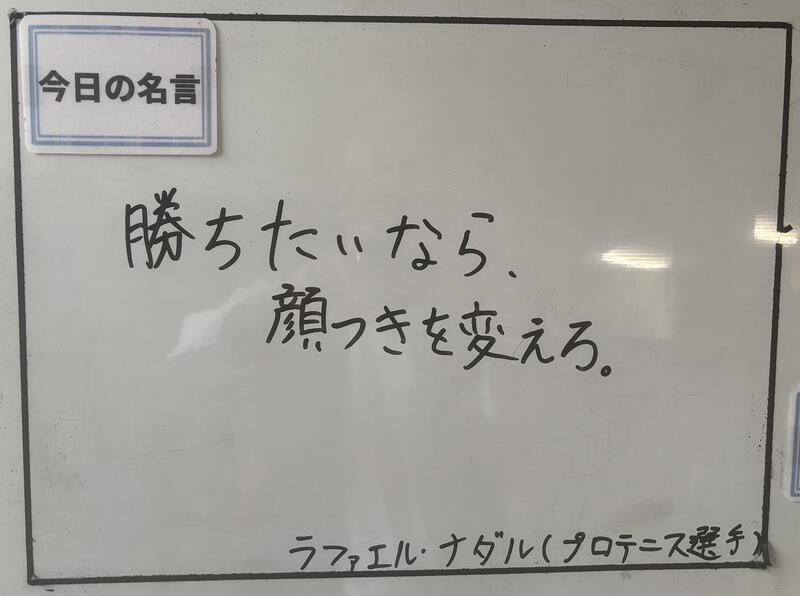 今日の名言
勝ちたいなら、
顔つきを変えろ。
ラファエル・ナダル(プロテニス選手)